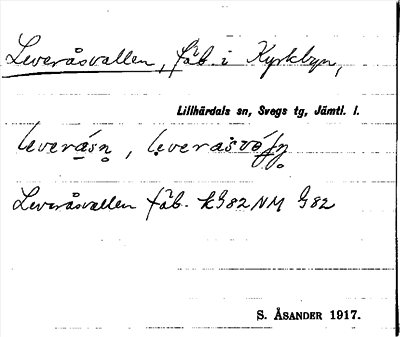 Leveråsvallen, fäb. i Kyrkbyn,
Lillhärdals sn, Svegs tg, Jämtl. l.
leverásn̥,
Leveråsvallen fäb. k982 NM 982
S. ÅSANDER 1917.